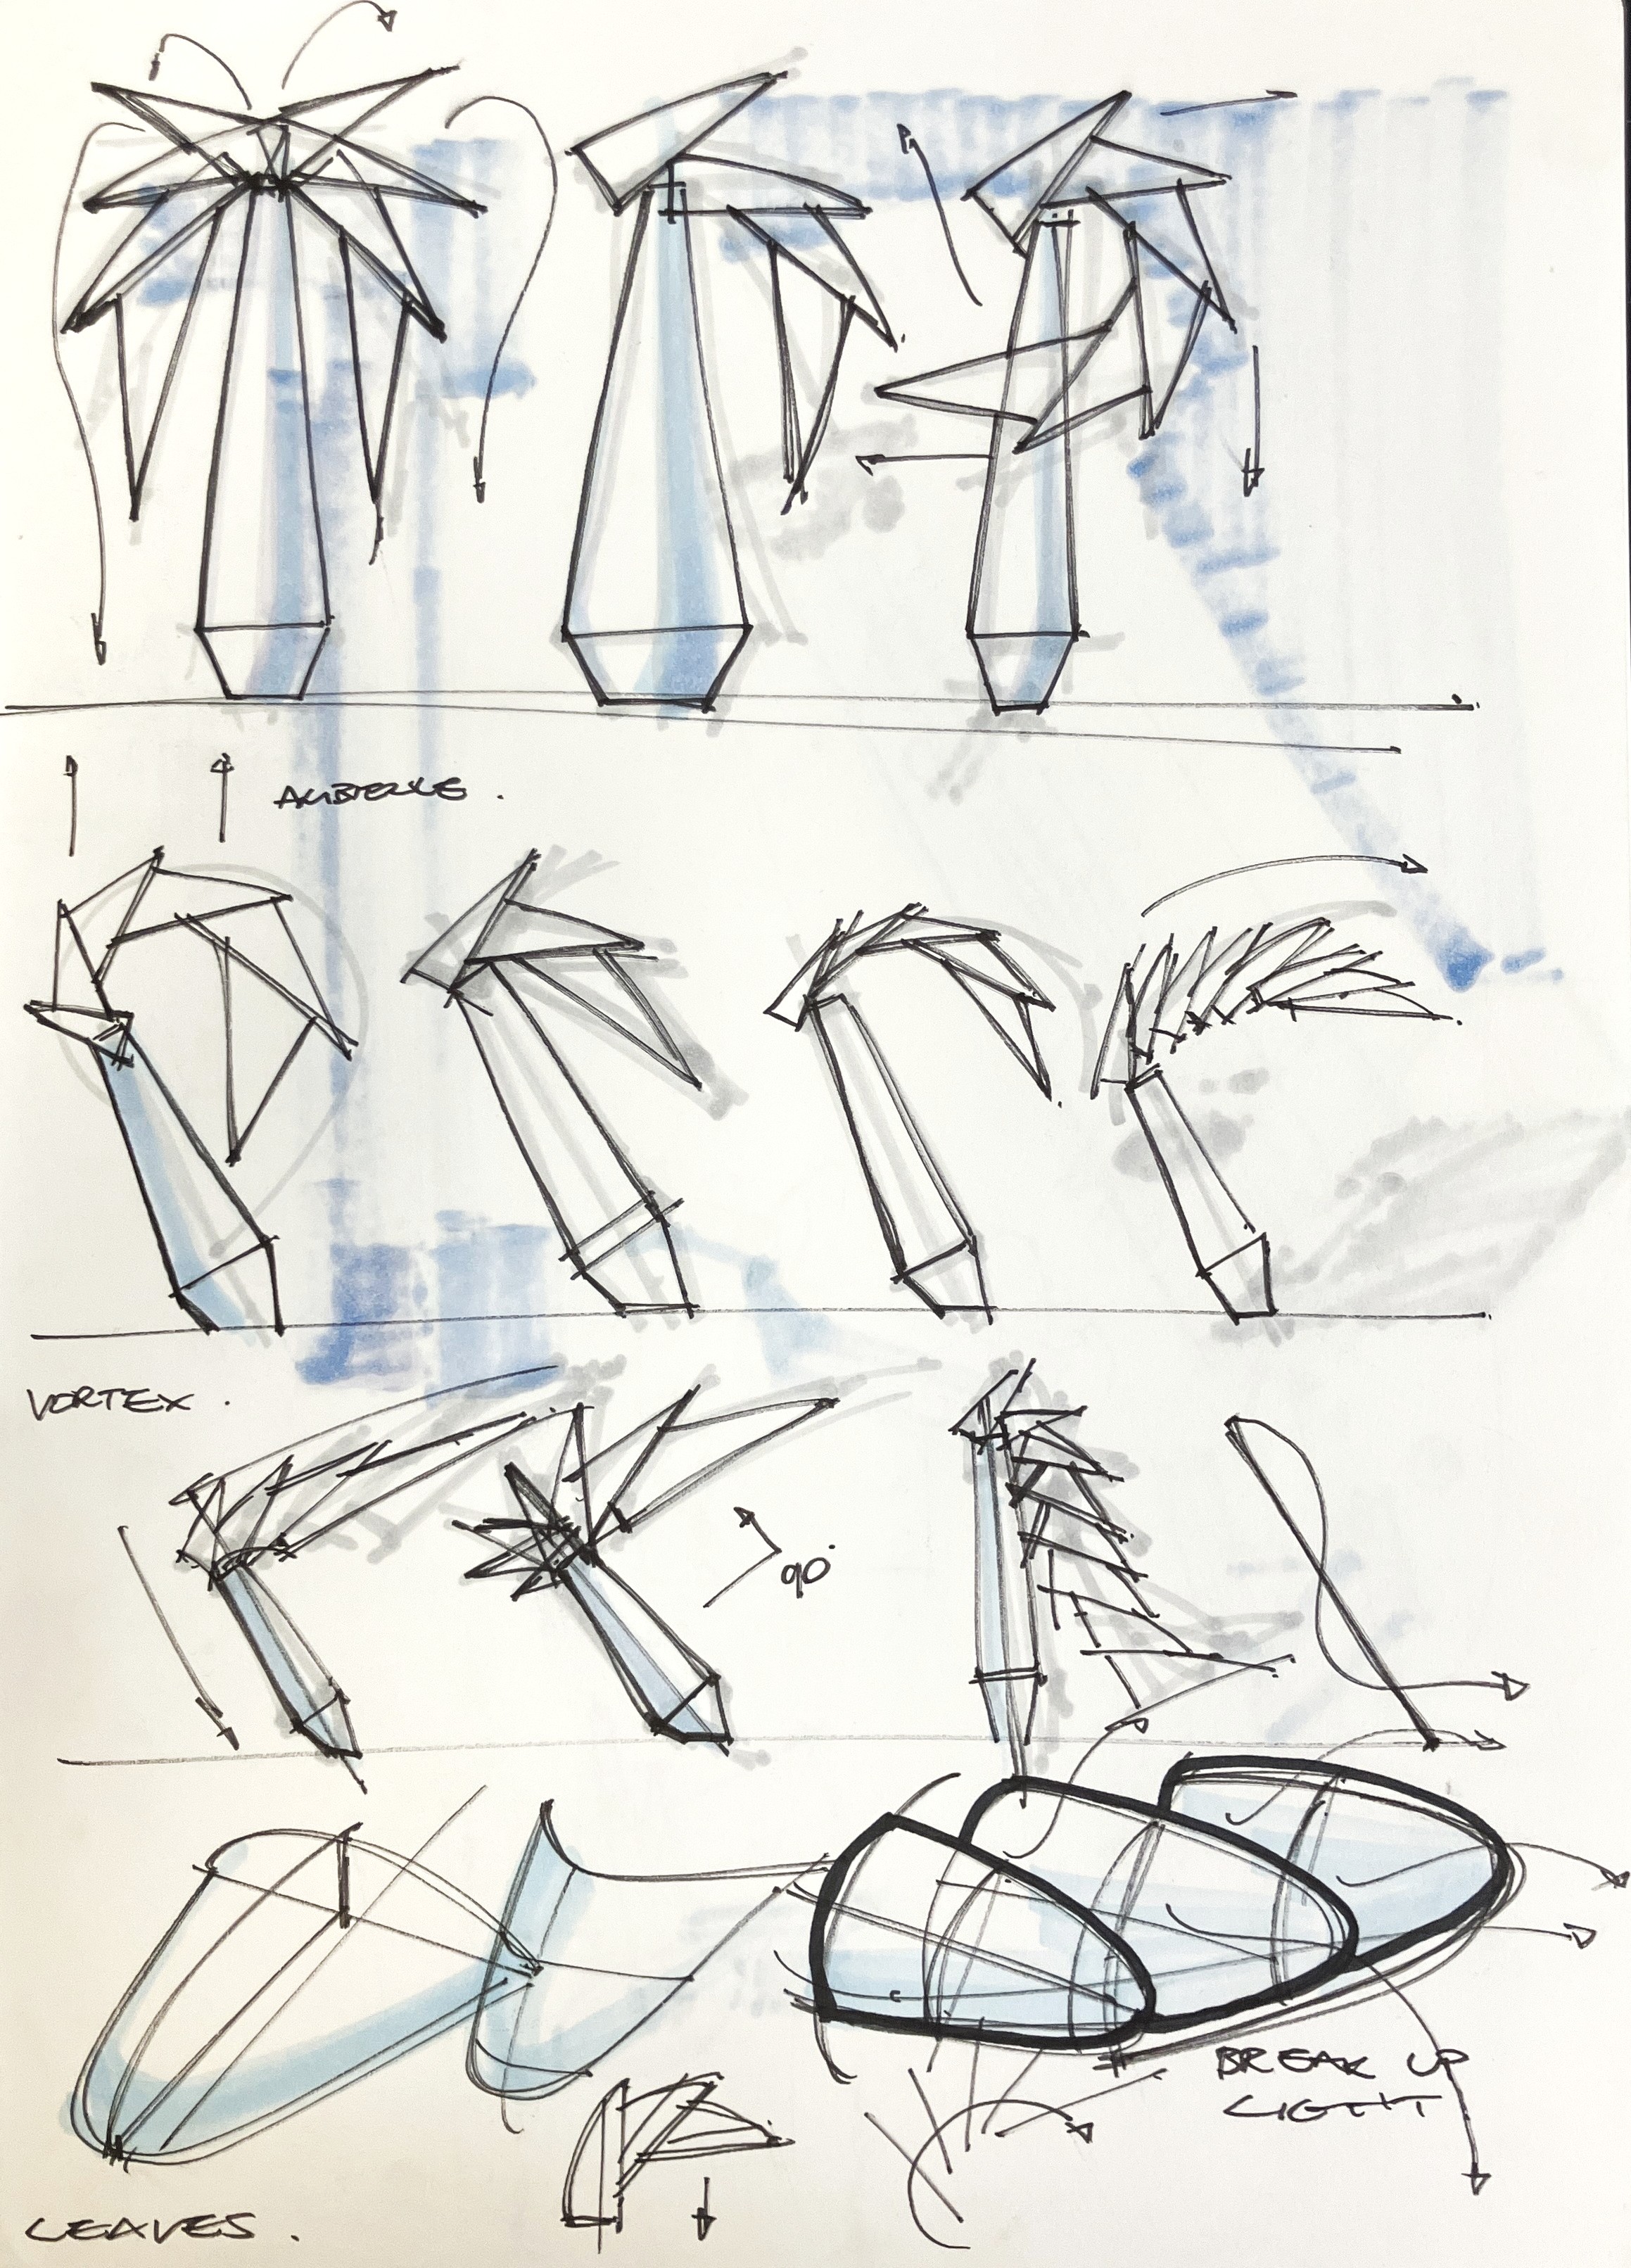 AMBIENCE.
VORTEX.
90°
BREAK UP
LIGHT
LEAVES.